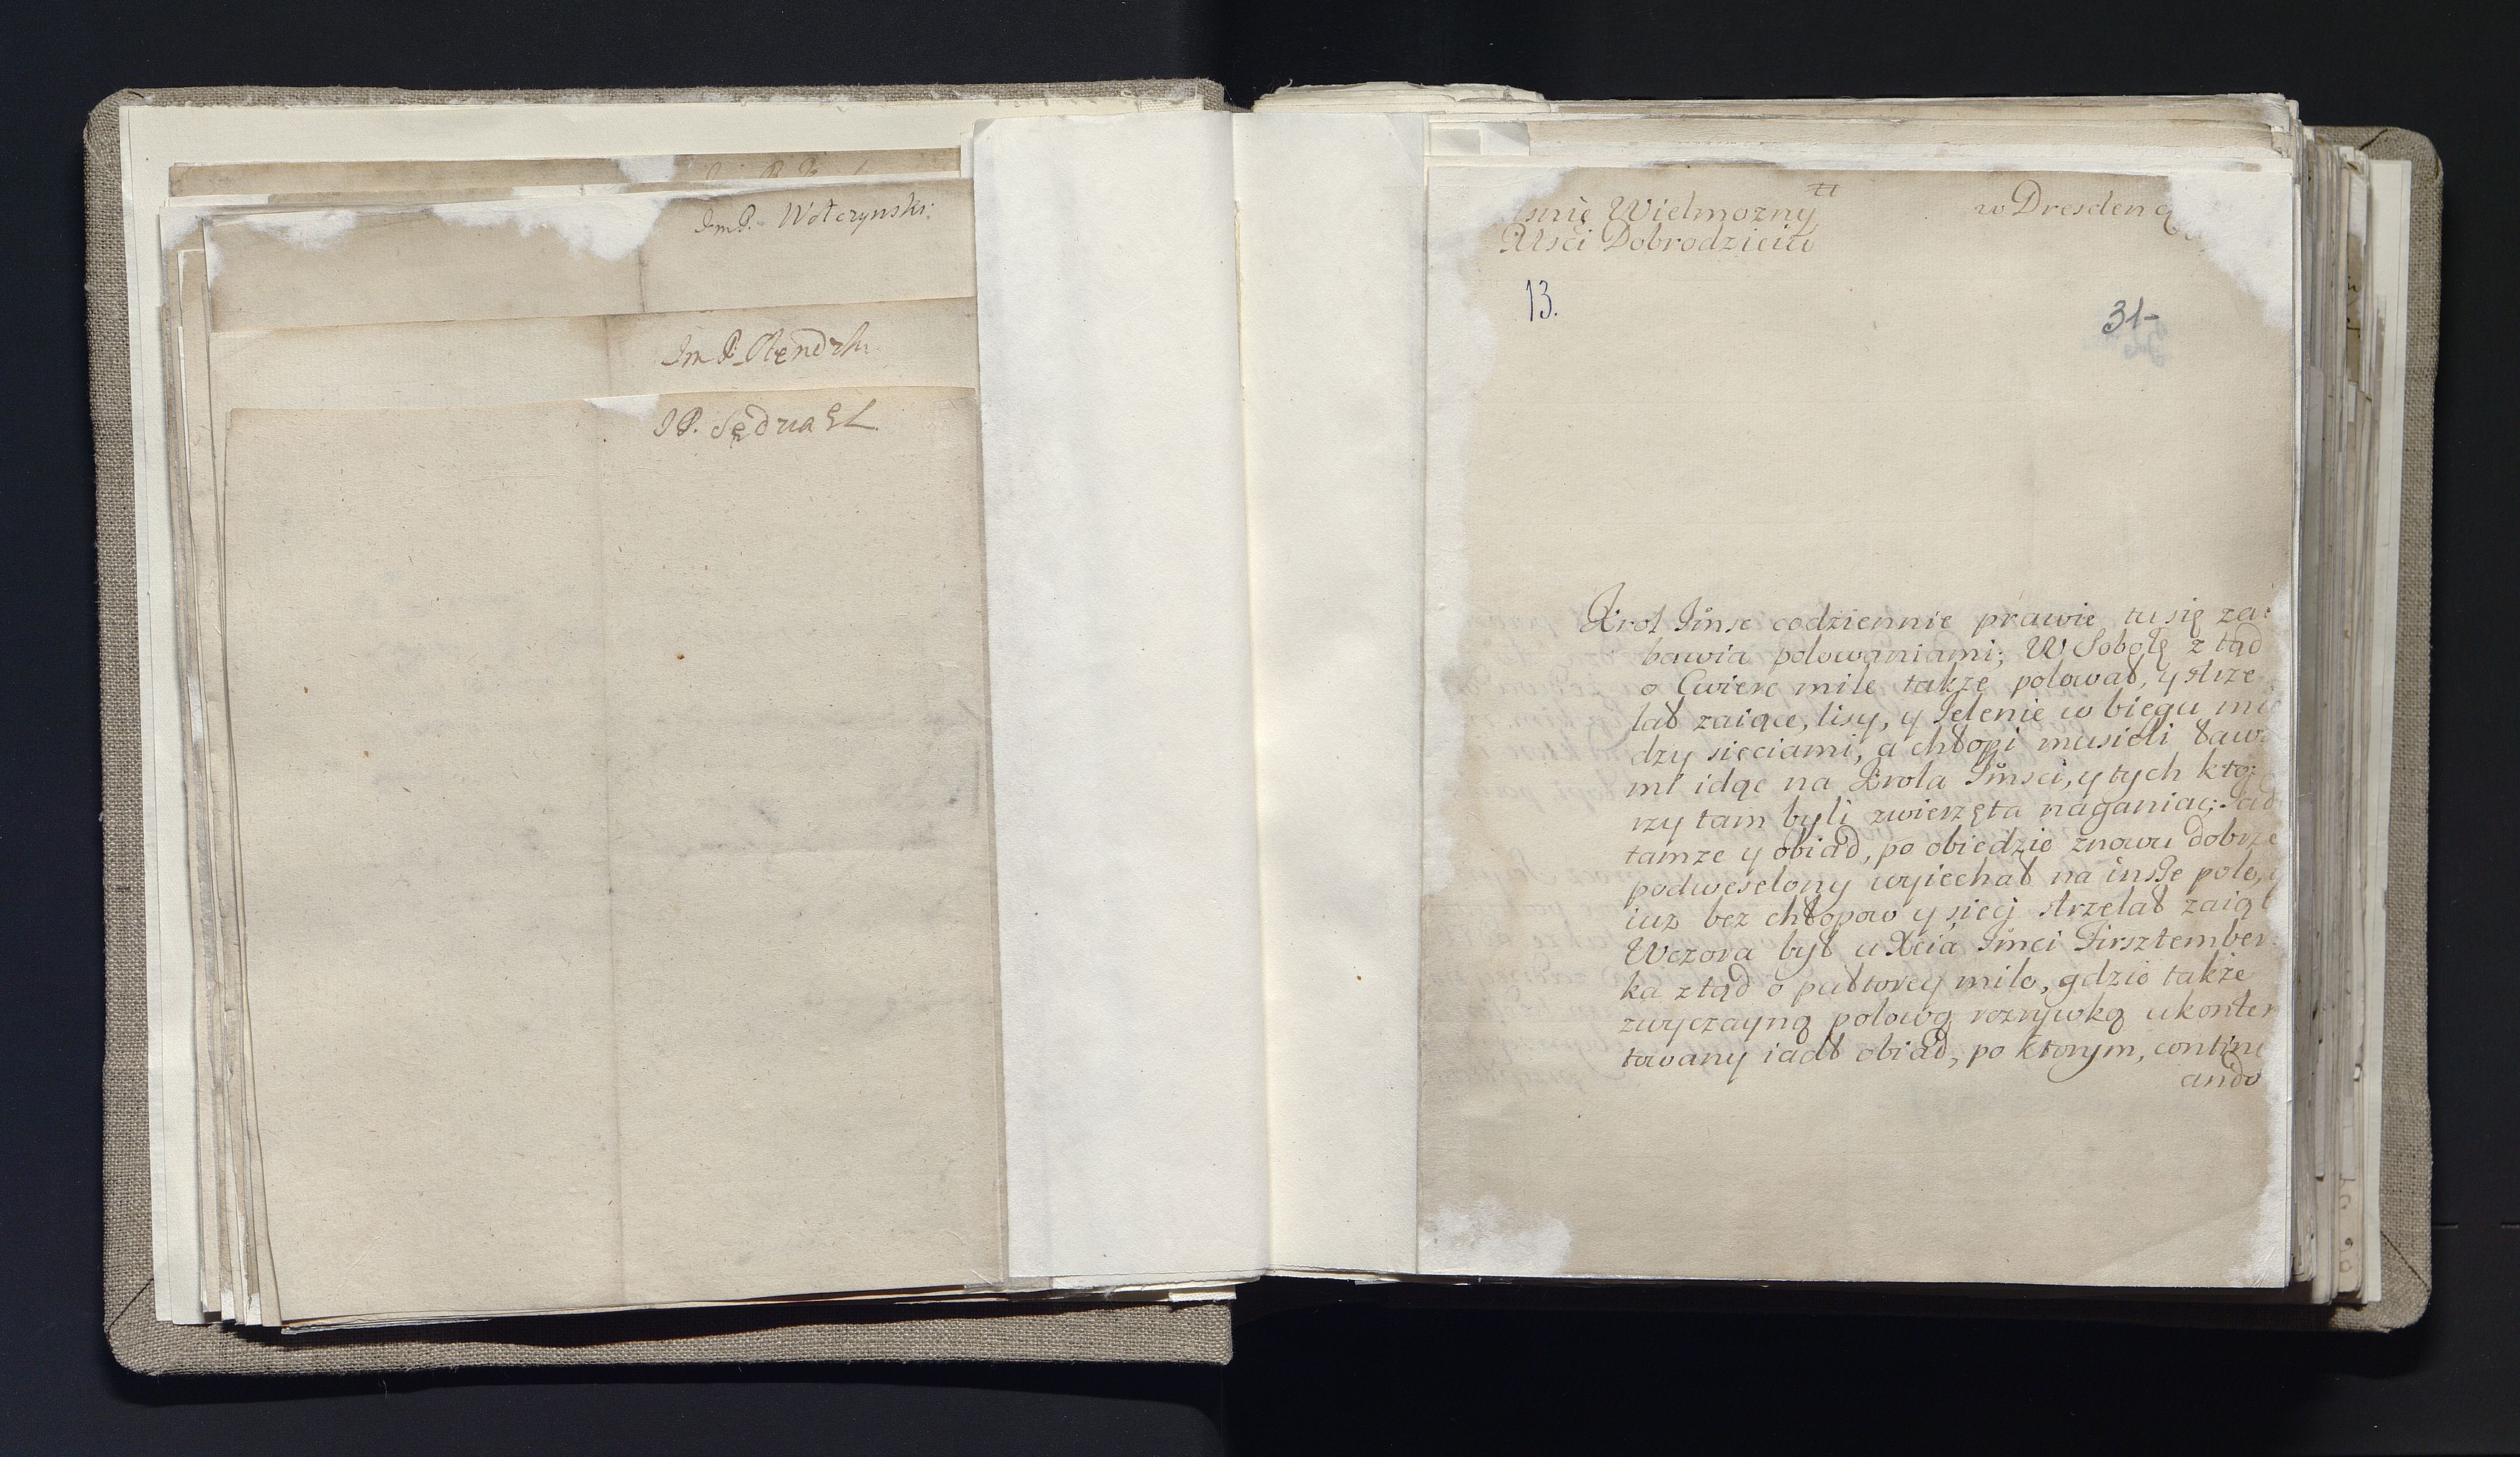 Im P. Wołczynski.
Im P.
I P. Sędzia
smię Wielmozny w Dresden
Msci Dobrodzieiu
13.
31-
Krol Jmsc codziennie prawie tu się za:
bawia polowaniami; W Sobotę z tąd
o Cwierc mile takze polował, y strze
lał zaiące, lisy, y Jelenie w biegu mię
dzy sieciami, a chłopi musieli ława
mi idąc na Krola Jmsci, y tych kto:
rzy tam byli zwierzęta naganiac; Jad
tamze y obiad, po obiedzie znowu dobrze
podweselony wyiechał na insze pole, y
iuz bez chłopow y sieci strzelał zaiąc
Wczora był u Xcia Jmci Firsztember:
ka z tąd o pułtorey mile, gdzie także
zwyczayną polową rozrywką ukonten
towany iadł obiad, po ktorym, continu
ando